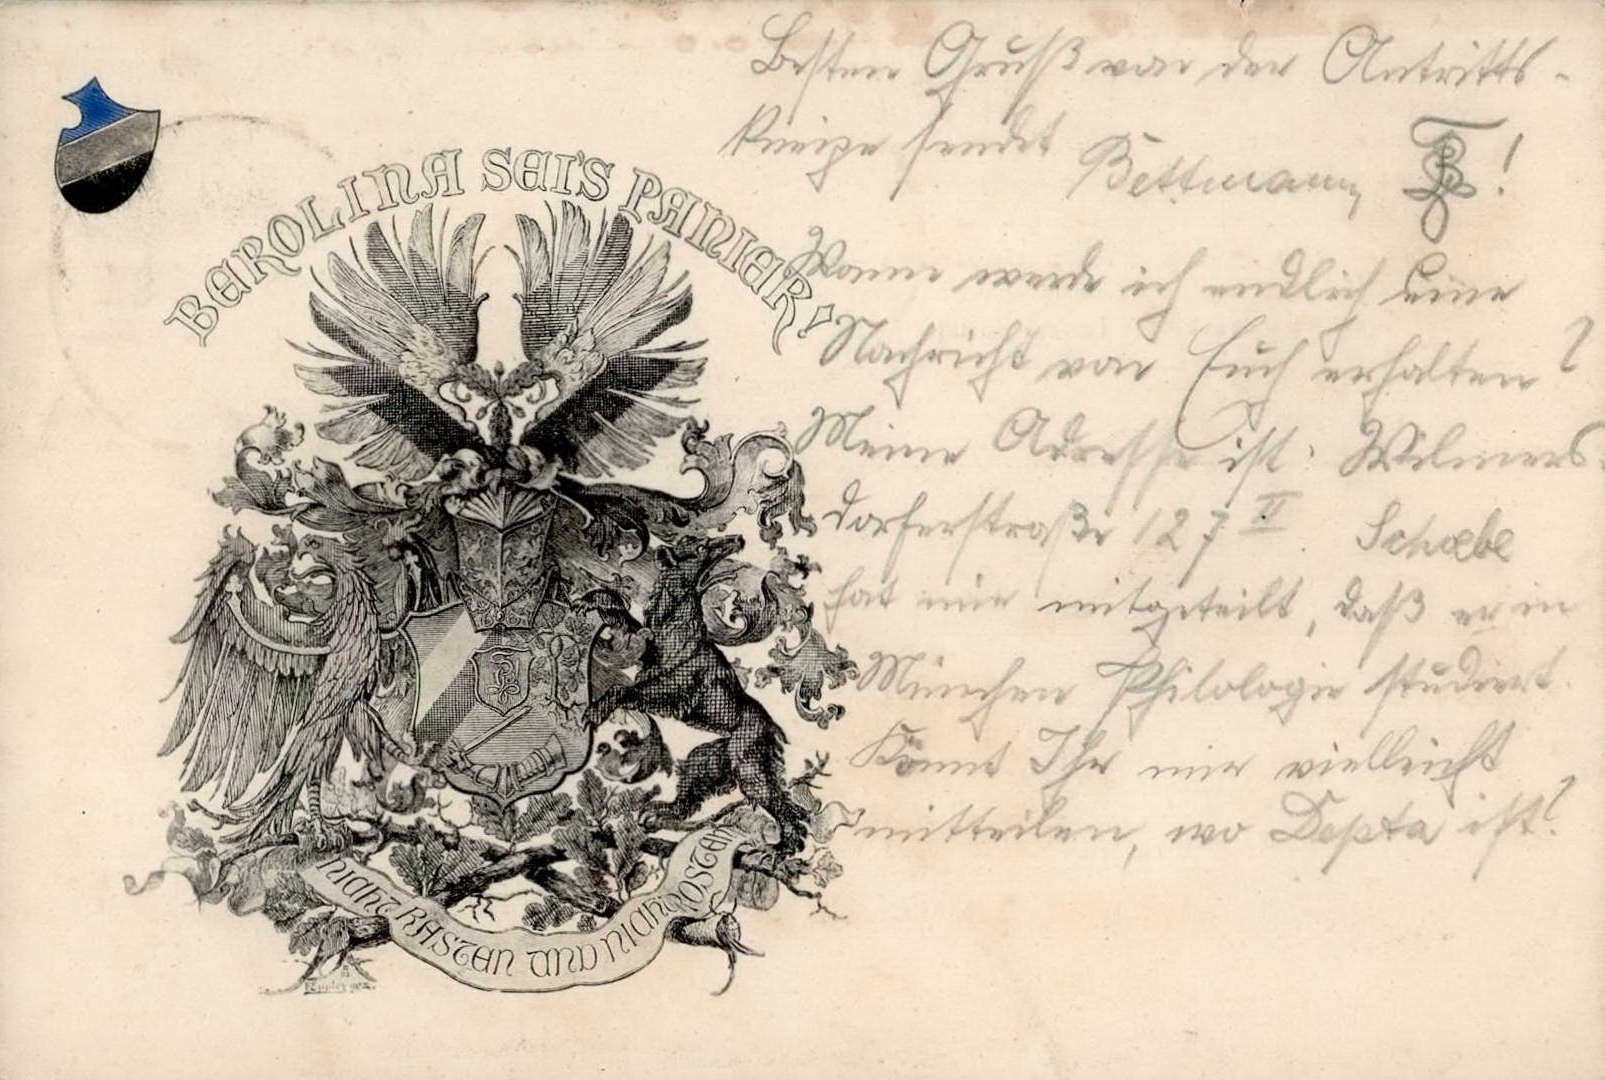 BEROLINA SEI'S PANIER!
Besten Gruß von der Antritts-
kneipe sendet Bettmann !
Wann werde ich endlich eine
Nachricht von Euch erhalten?
Meine Adresse ist: Wilmers-
dorferstraße 127 II Schoebe
hat mir mitgeteilt, daß er in
München Philologie studiert.
Könnt Ihr mir vielleicht
mitteilen, wo Depta ist?
NICHT RASTEN UND NICHT ROSTEN